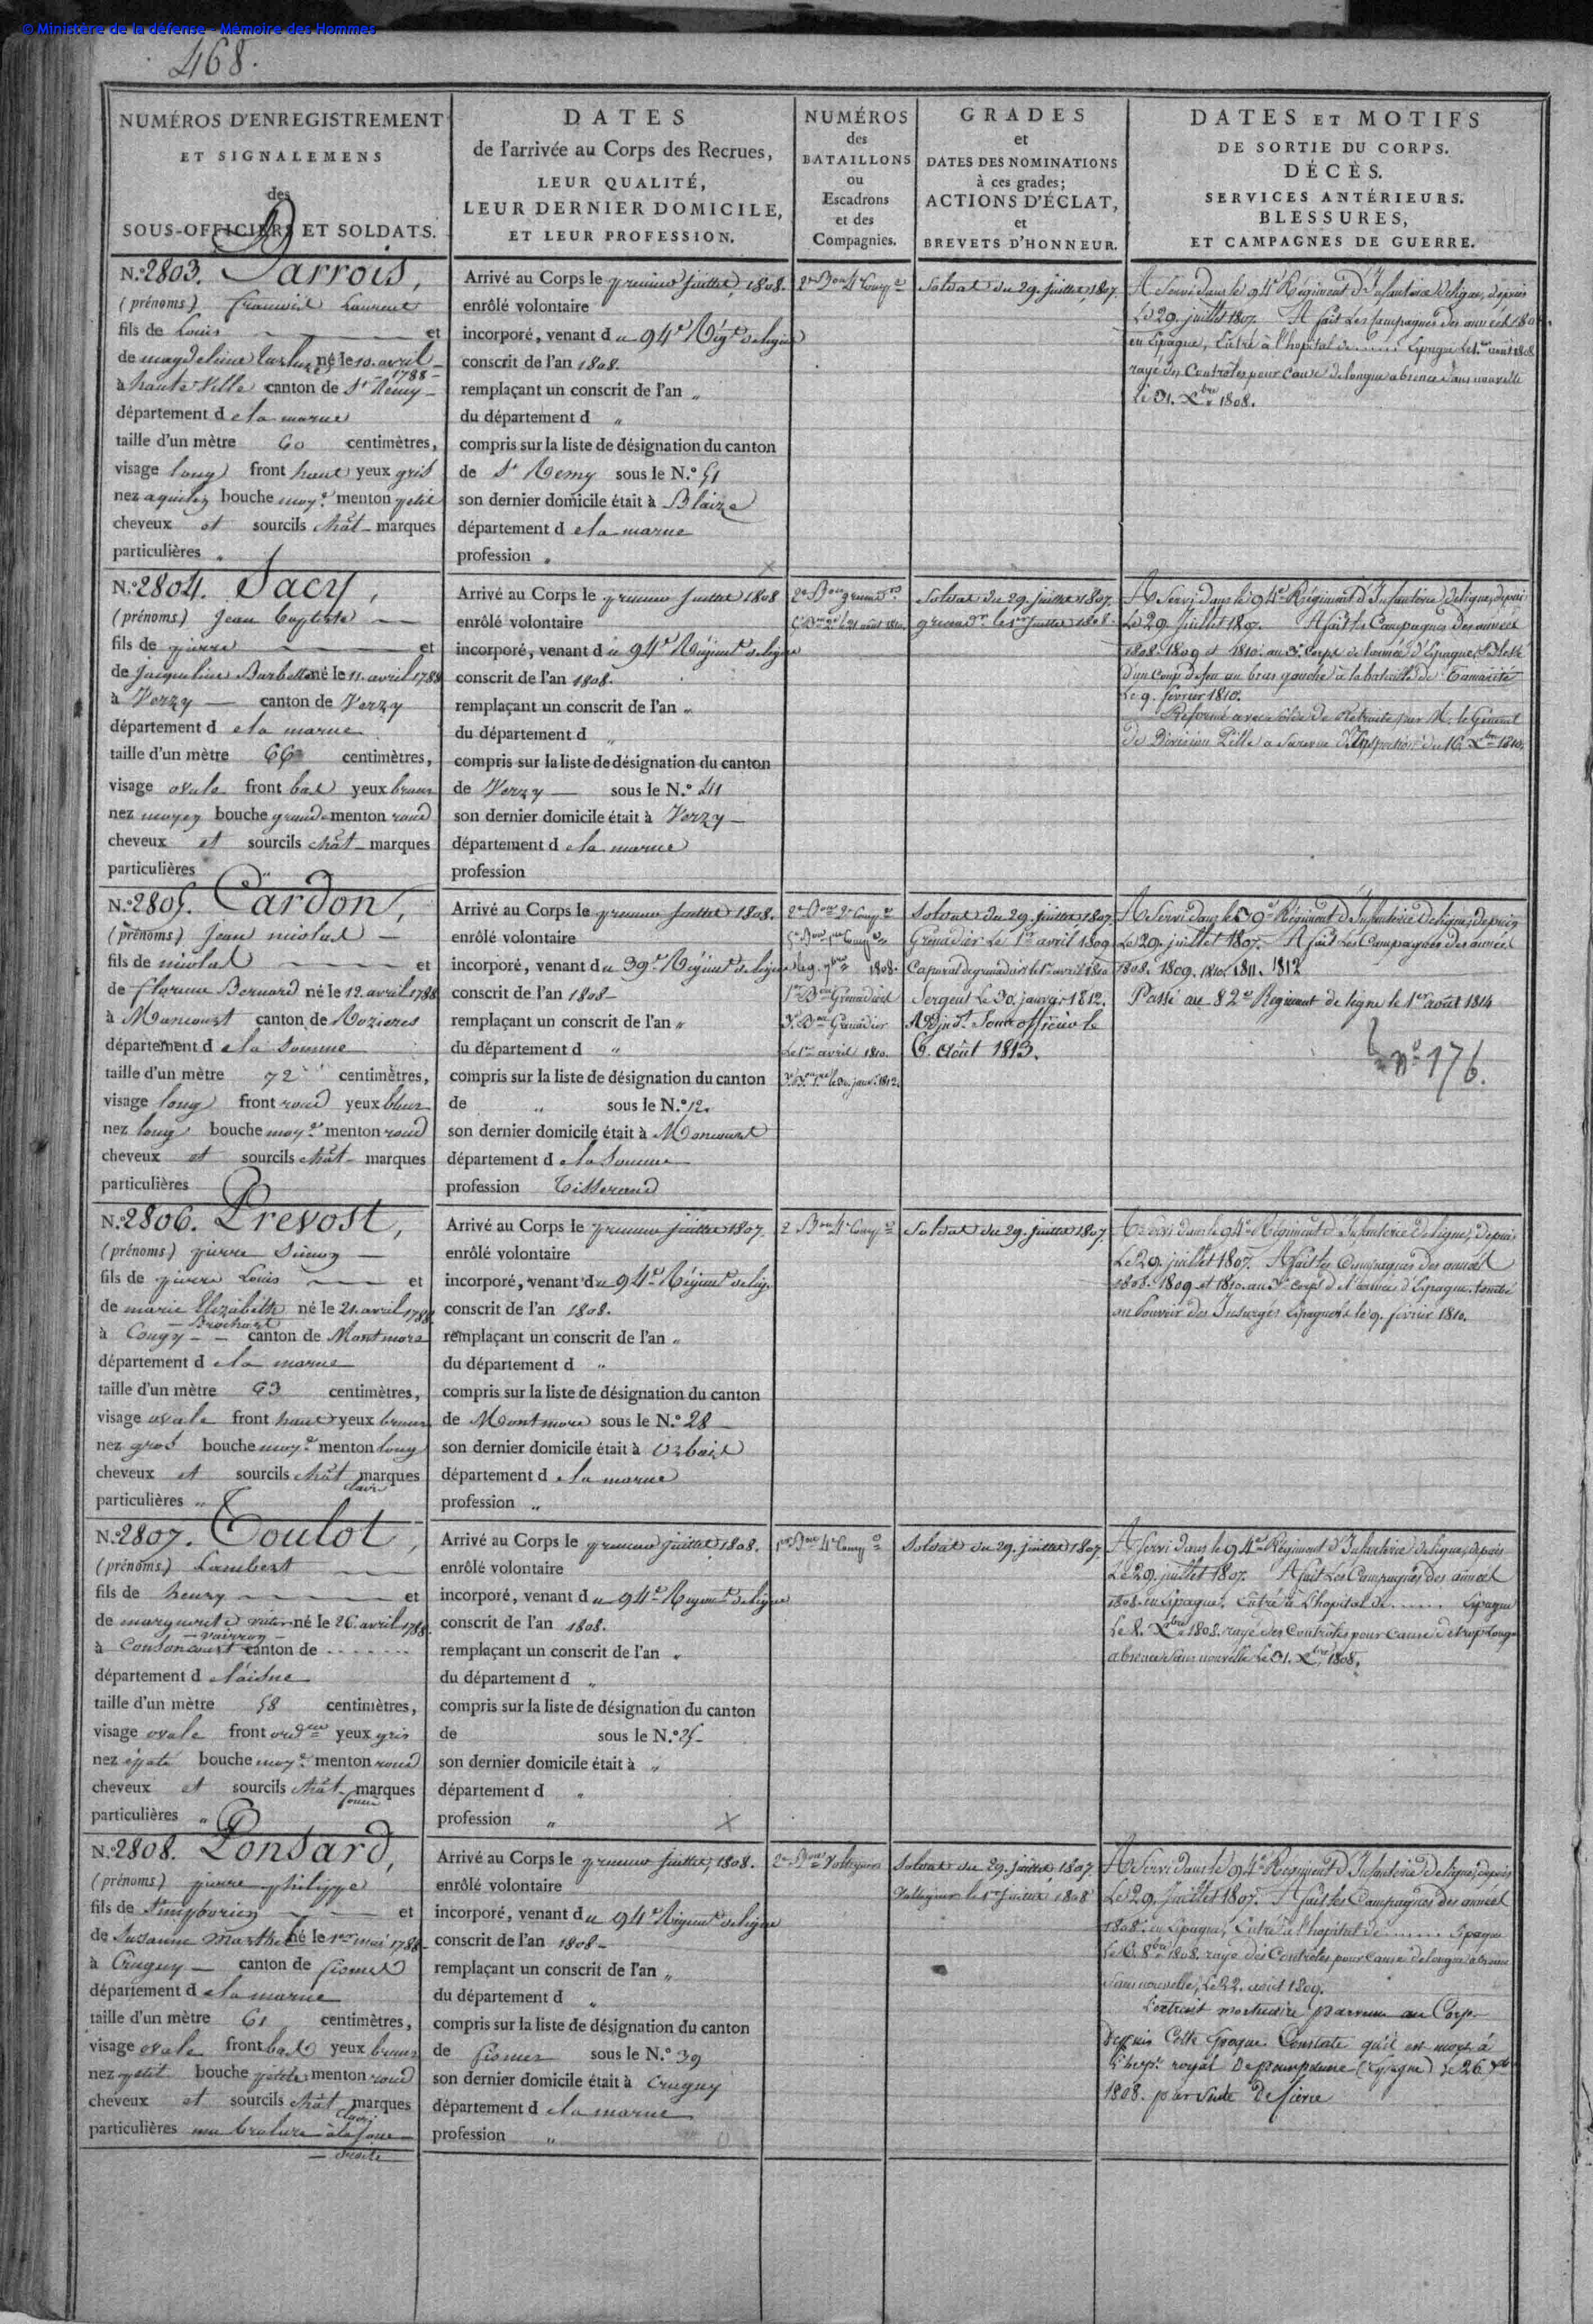 © Ministère de la défense - Mémoire des Hommes
468.
NUMÉROS D'ENREGISTREMENT
ET SIGNALEMENS
des
SOUS-OFFICIERS ET SOLDATS.
DATES
de l'arrivée au Corps des Recrues,
LEUR QUALITÉ,
LEUR DERNIER DOMICILE,
ET LEUR PROFESSION.
NUMÉROS
des
BATAILLONS
ou
Escadrons
et des
Compagnies.
GRADES
et
DATES DES NOMINATIONS
à ces grades;
ACTIONS D'ÉCLAT,
et
BREVETS D'HONNEUR.
DATES ET MOTIFS
DE SORTIE DU CORPS.
DÉCÈS.
SERVICES ANTÉRIEURS.
BLESSURES,
ET CAMPAGNES DE GUERRE.
N.º 2803. Parrois,
(prénoms) françois Laurent
fils de Louis et
de magdeleine né le 10. avril
1788
à haute Ville canton de St Remy
département de la marne
taille d'un mètre 60 centimètres,
visage long front haut yeux gris
nez aquilin bouche moy.e menton petit
cheveux et sourcils chât marques
particulières "
Arrivé au Corps le premier juillet, 1808.
enrôlé volontaire
incorporé, venant du 94e Régt de ligne
conscrit de l'an 1808.
remplaçant un conscrit de l'an "
du département d "
compris sur la liste de désignation du canton
de St Remy sous le N.º 51
son dernier domicile était à Blaize
département de la marne
profession "
2e Bon 4e Compie
Soldat du 29. juillet, 1807.
A Servi dans le 94e Régiment d'Infanterie de ligne, depuis
Le 29. juillet 1807. A fait Les Campagnes des années 1808
en Espagne, Entré à l'hopital de ...... Espagne Le 1er août 1808
rayé des Contrôles pour Cause de longue absence sans nouvelle
le 31. Xbre 1808.
N.º 2804. Sacy,
(prénoms) Jean Baptiste
fils de pierre et
de Jacqueline Barbette né le 11. avril 1788
à Verzy canton de Verzy
département de la marne
taille d'un mètre 66 centimètres,
visage ovale front bas yeux bruns
nez moyen bouche grande menton rond
cheveux et sourcils chât marques
particulières "
Arrivé au Corps le premier juillet 1808
enrôlé volontaire
incorporé, venant du 94e Régiment de ligne
conscrit de l'an 1808.
remplaçant un conscrit de l'an "
du département d "
compris sur la liste de désignation du canton
de Verzy sous le N.º 41
son dernier domicile était à Verzy
département de la marne
profession
2e Bon grenadrs
21 août 1810.
Soldat du 29. juillet 1807.
grenadr le 1er juillet 1808.
A Servi dans le 94e Régiment d'Infanterie de ligne, depuis
Le 29. juillet 1807. A fait Les Campagnes des années
1808. 1809 et 1810. au 3e Corps de l'armée d'Espagne, Blessé
d'un Coup de feu au bras gauche à la bataille de Tamarité
Le 9. février 1810.
Réformé avec solde de Retraite par M. le Général
de Division Pille a sa revue d'Inspection du 16. Xbre 1810.
N.º 2805. Cardon,
(prénoms) Jean nicolas
fils de nicolas et
de florence Bernard né le 12. avril 1788
à Mancourt canton de Rozieres
département de la Somme
taille d'un mètre 72 centimètres,
visage long front rond yeux bleus
nez long bouche moy.e menton rond
cheveux et sourcils chât marques
particulières
Arrivé au Corps le premier juillet 1808.
enrôlé volontaire
incorporé, venant du 39e Régiment de ligne
conscrit de l'an 1808
remplaçant un conscrit de l'an "
du département d "
compris sur la liste de désignation du canton
de " sous le N.º 12.
son dernier domicile était à Mancourt
département de la Somme
profession Tisserand
2e Bon 2e Compie
5e Bon 1re Compie
le 9. 9bre 1808.
1er Bon Grenadiers
3e Bon Grenadier
Le 1er avril 1810.
le 30. janvr 1812.
Soldat du 29. juillet 1807.
Grenadier Le 1er avril 1809
Caporal de grenadiers le 1er avril 1810
Sergent Le 30. janvier 1812.
Adjt Sous officier le
6. Août 1813.
A Servi dans le 39e Régiment d'Infanterie de ligne, depuis
Le 29. juillet 1807. A fait Les Campagnes des années
1808. 1809. 1810. 1811. 1812
Passé au 82e Régiment de ligne le 1er août 1814
nº 176.
N.º 2806. Prevost,
(prénoms) pierre Simon
fils de pierre Louis et
de marie Elizabeth né le 21. avril 1788
Brochart
à Congy canton de Montmore
département de la marne
taille d'un mètre 63 centimètres,
visage ovale front haut yeux bruns
nez gros bouche moy.e menton long
cheveux et sourcils chât marques
clairs
particulières "
Arrivé au Corps le premier juillet 1807.
enrôlé volontaire
incorporé, venant du 94e Régiment de lig.
conscrit de l'an 1808.
remplaçant un conscrit de l'an "
du département d "
compris sur la liste de désignation du canton
de Montmore sous le N.º 28
son dernier domicile était à Orbais
département de la marne
profession "
2 Bon 4e Compie
Soldat du 29. juillet 1807.
A Servi dans le 94e Régiment d'Infanterie de ligne, depuis
Le 29. juillet 1807. A fait Les Campagnes des années
1808. 1809 et 1810. au 3e corps de l'armée d'Espagne. tombé
au Pouvoir des Insurgés Espagnols le 9. février 1810.
N.º 2807. Toulot,
(prénoms) Lambert
fils de henry et
de marguerite né le 26 avril 1788.
à Consoncourt canton de .......
département de l'aisne
taille d'un mètre 58 centimètres,
visage ovale front ordre yeux gris
nez épaté bouche moy.e menton rond
cheveux et sourcils chât marques
foncés
particulières "
Arrivé au Corps le premier juillet, 1808.
enrôlé volontaire
incorporé, venant du 94e Régiment de ligne
conscrit de l'an 1808.
remplaçant un conscrit de l'an "
du département d "
compris sur la liste de désignation du canton
de sous le N.º 25
son dernier domicile était à "
département d "
profession "
1er Bon 4e Compie
Soldat du 29. juillet 1807
A Servi dans le 94e Régiment d'Infanterie de ligne, depuis
Le 29. juillet 1807. A fait Les Campagnes des années
1808. en Espagne. Entré à L'hopital de ...... Espagne
Le 8. Xbre 1808. rayé des Contrôles pour cause de trop longue
absence sans nouvelle Le 31. Xbre 1808.
N.º 2808. Ponsard,
(prénoms) pierre philippe
fils de Simphorien et
de Suzanne Marthe né le 1er mai 1788
à Crugny canton de fismes
département de la marne
taille d'un mètre 61 centimètres,
visage ovale front bas yeux bruns
nez petit bouche petite menton rond
cheveux et sourcils chât marques
clairs
particulières une brulure à la joue
droite
Arrivé au Corps le premier juillet, 1808.
enrôlé volontaire
incorporé, venant du 94e Régiment de ligne
conscrit de l'an 1808
remplaçant un conscrit de l'an "
du département d "
compris sur la liste de désignation du canton
de fismes sous le N.º 39
son dernier domicile était à Crugny
département de la marne
profession "
2e Bon Voltigeurs
Soldat du 29. juillet, 1807
Voltigeur le 1er juillet 1808
A Servi dans le 94e Régiment d'Infanterie de ligne, depuis
Le 29. Juillet 1807. A fait Les Campagnes des années
1808. en Espagne, Entré à l'hopital de ...... Espagne
Le 6. 8bre 1808. rayé des Contrôles pour cause de longue absence
sans nouvelle, Le 22. août 1809.
L'extrait mortuaire parvenu au Corps
depuis Cette époque Constate qu'il est mort à
l'hopl royal de pampelune (Espagne) le 26 bre
1808. par suite de fièvre